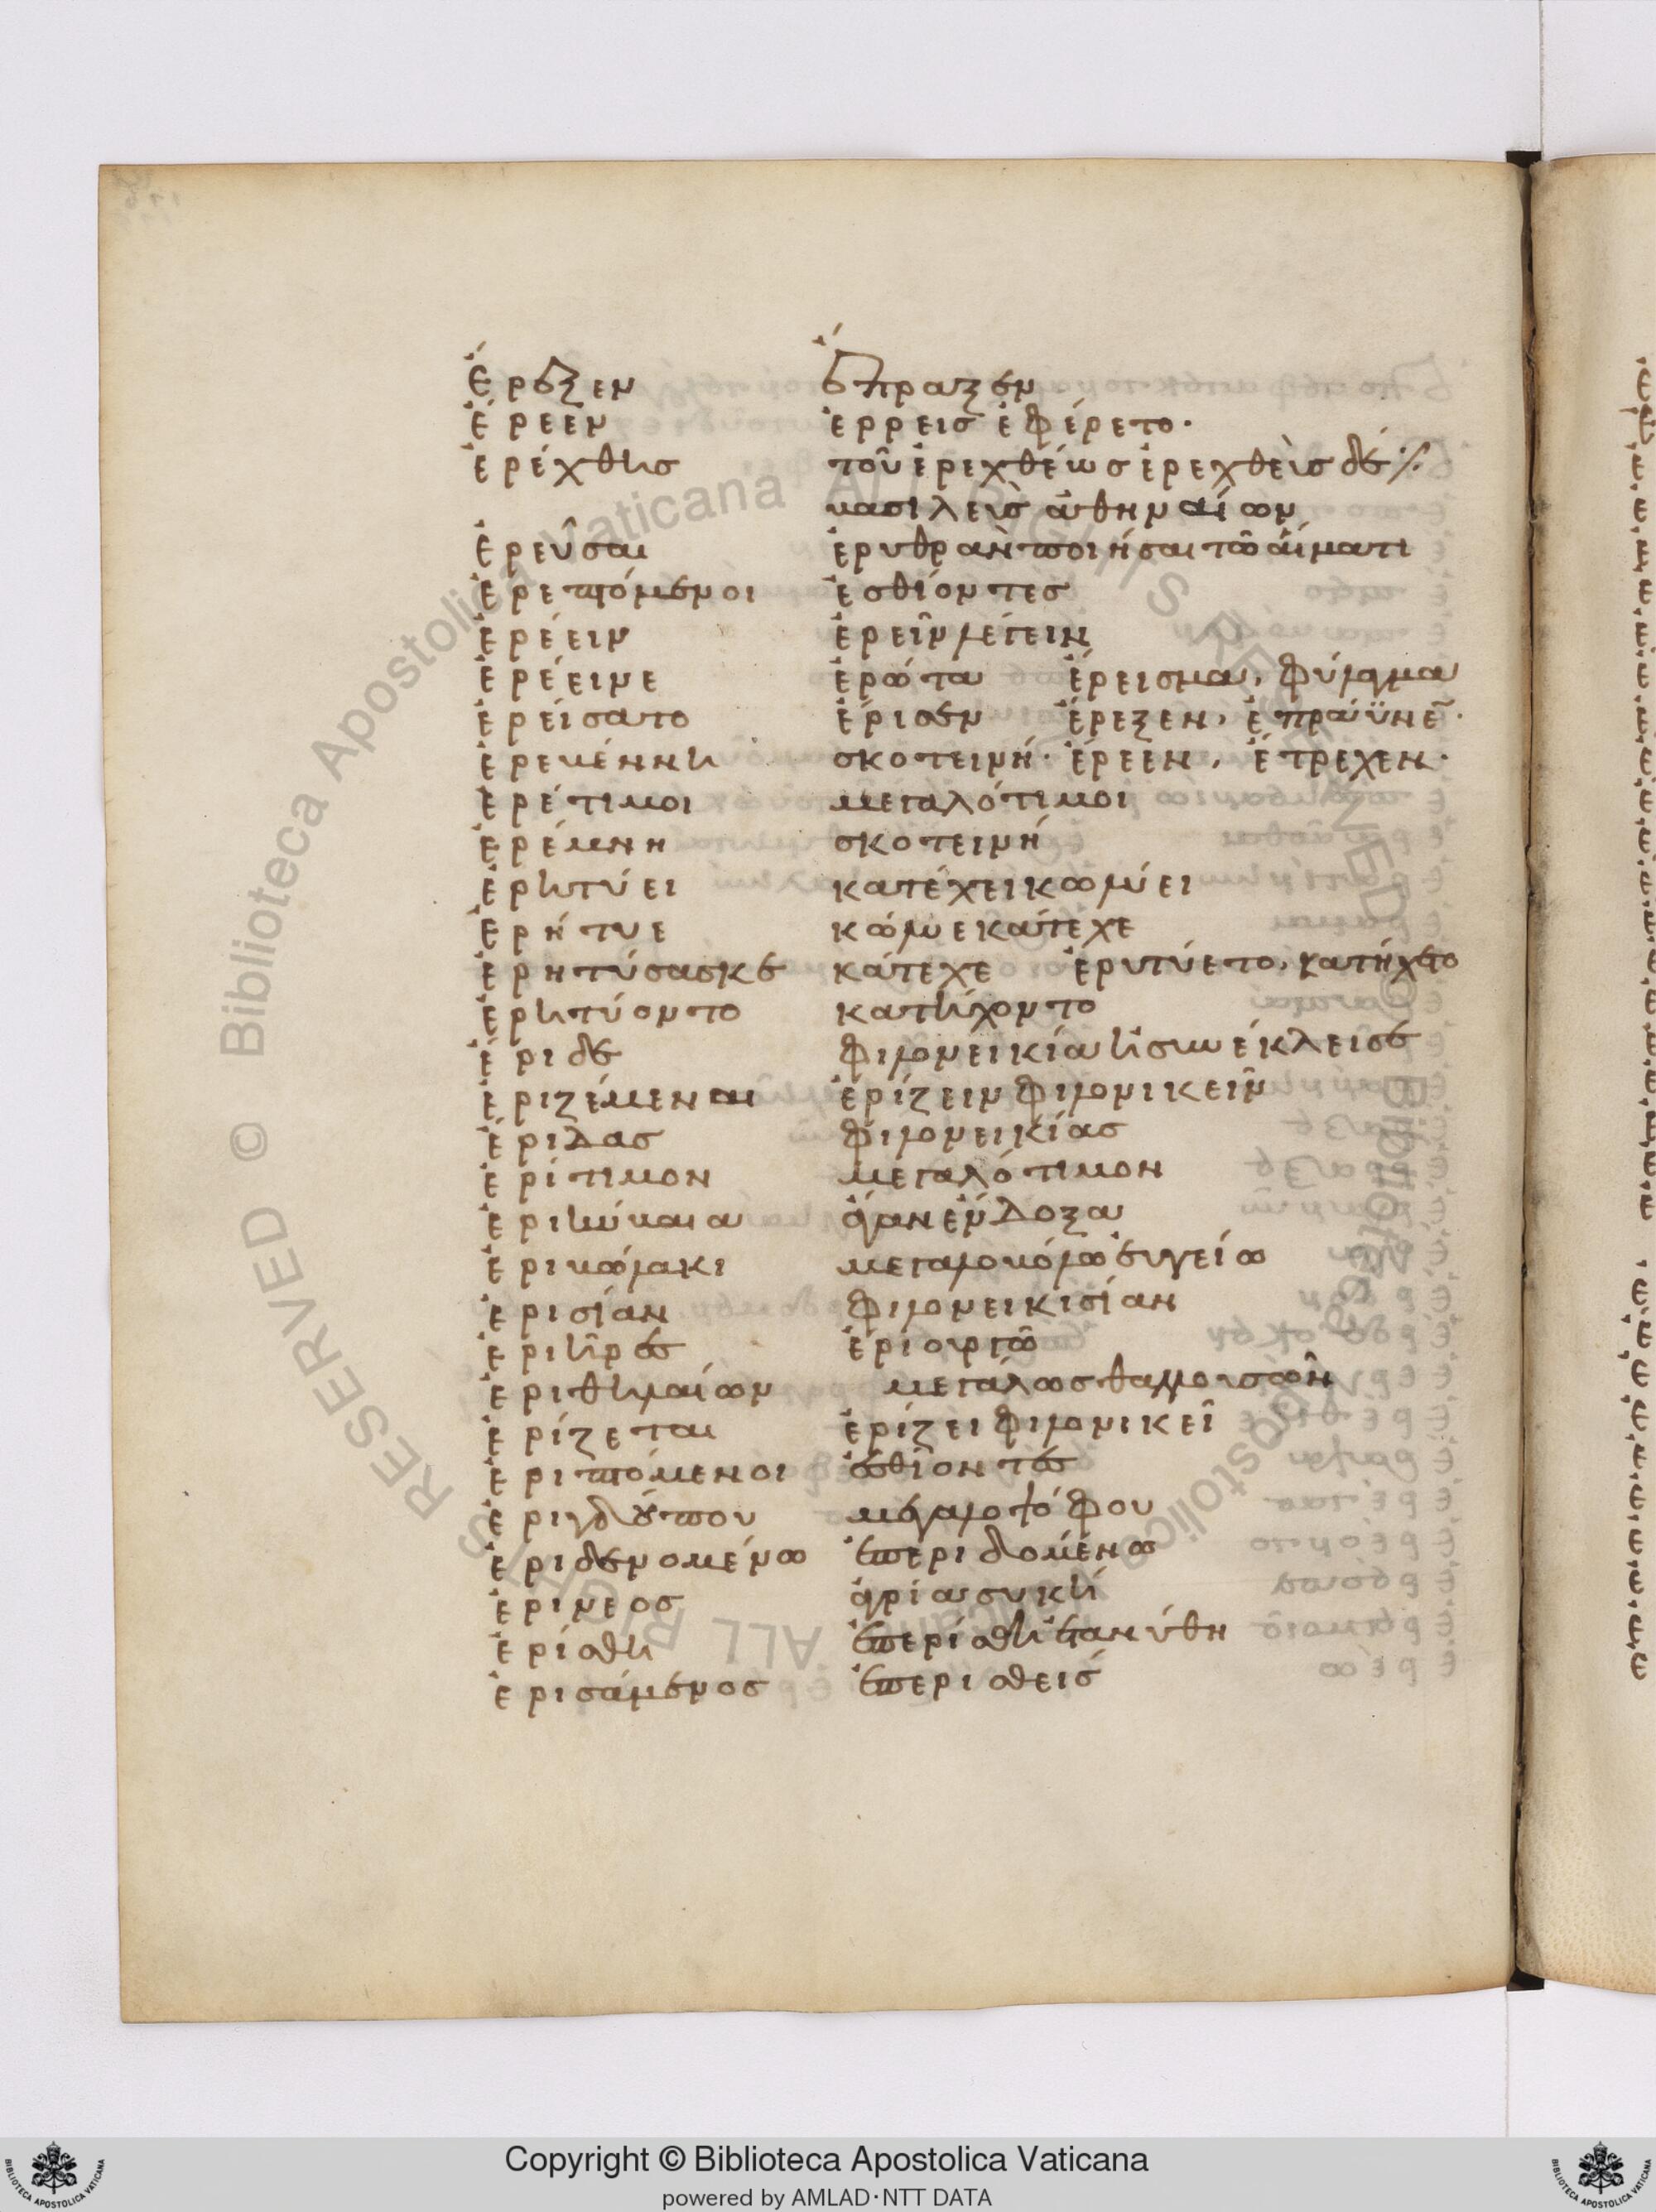 ἔρεξεν ἔπραξεν
ἔρεεν ἐρρεισ ἐφέρετο·
ἐρέχθησ τοῦ ἐρεχθέωσ ἐρεχθεὺσ δέ
βασιλεὺσ ἀθηναίων
ἐρεῦσαι ἐρυθρὰν ποιήσαι τῶ αἵματι
ἐρεπτόμενοι ἐσθίοντεσ
ἐρέειν ἐρεῖν λέγειν
ἐρέεινε ἐρώτα ἔρεισμα, φύλαγμα
ἐρείσατο ἔρισεν ἔρεξεν, ἐπράϋνε·
ἐρεβέννη σκοτεινή· ἔρεεν, ἔτρεχεν·
ἐρέτιμοι μεγαλότιμοι
ἐρέμνη σκοτεινή
ἐρητύει κατέχει κωλύει
ἐρήτυε κώλυε κάτεχε
ἐρητύσασκε κάτεχε ἐρυτύετο, κατήχετο
ἐρητύοντο κατήχοντο
ἔριδε φιλονεικία ἔκλεισε
ἐριζέμεναι ἐρίζειν φιλονικεῖν
ἔριδασ φιλονεικίασ
ἐρίτιμον μεγαλότιμον
ἐρικύδαια ἄγαν ἔνδοξα
ἐριβώλακι μεγαλοβόλω εὐγείω
ἐρισίαν φιλονεικισίαν
ἐριῆρεσ
ἐριθηλαίων μεγάλωσ θαλλουσῶν
ἐρίζεται ἐρίζει φιλονικεῖ
ἐριπτόμενοι ἐσθίοντεσ
ἐριγδούπου μεγαλοψόφου
ἐριδενομένω
ἐρινεοσ ἀγρία συκῆ
ἐρίσθη
ἐρισάμενοσ
Copyright © Biblioteca Apostolica Vaticana
powered by AMLAD·NTT DATA